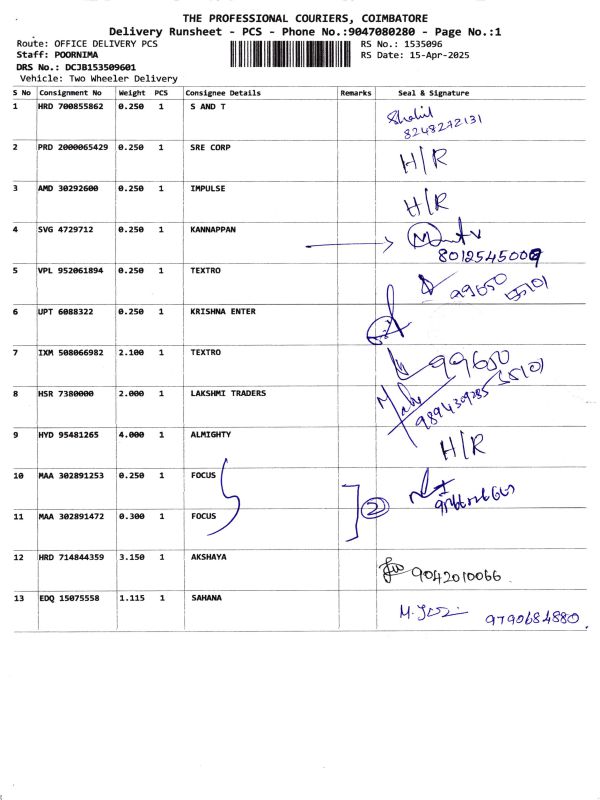 THE PROFESSIONAL COURIERS, COIMBATORE
Delivery Runsheet - PCS - Phone No.:9047080280 - Page No.:1
Route: OFFICE DELIVERY PCS RS No.: 1535096
Staff: POORNIMA RS Date: 15-Apr-2025
DRS No.: DCJB153509601
Vehicle: Two Wheeler Delivery
S No Consignment No Weight PCS Consignee Details Remarks Seal & Signature
1 HRD 700855862 0.250 1 S AND T
8248272131
2 PRD 2000065429 0.250 1 SRE CORP H/R
3 AMD 30292600 0.250 1 IMPULSE H/R
4 SVG 4729712 0.250 1 KANNAPPAN
8012545009
5 VPL 952061894 0.250 1 TEXTRO 99650 55101
6 UPT 6088322 0.250 1 KRISHNA ENTER
7 IXM 508066982 2.100 1 TEXTRO 99650 55101
8 HSR 7380000 2.000 1 LAKSHMI TRADERS 9894309285
9 HYD 95481265 4.000 1 ALMIGHTY H/R
10 MAA 302891253 0.250 1 FOCUS
11 MAA 302891472 0.300 1 FOCUS 2
12 HRD 714844359 3.150 1 AKSHAYA 9042010066
13 EDQ 15075558 1.115 1 SAHANA 9790684880